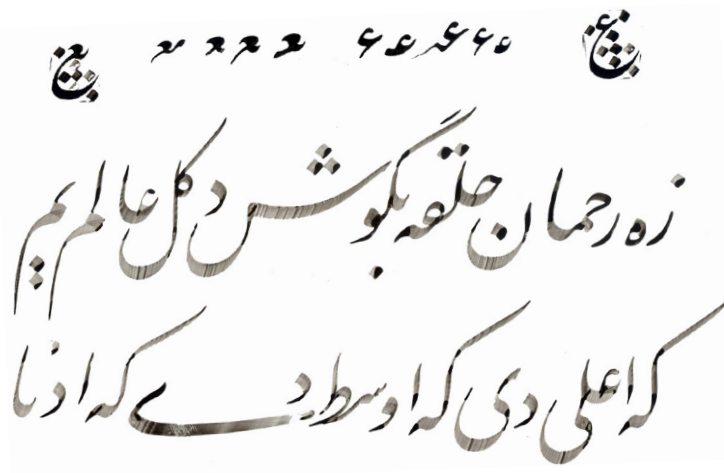 زه رحمان حلقه بگوش د كل عالم يم
كه اعلى دى كه اوسط دے كه ادنا